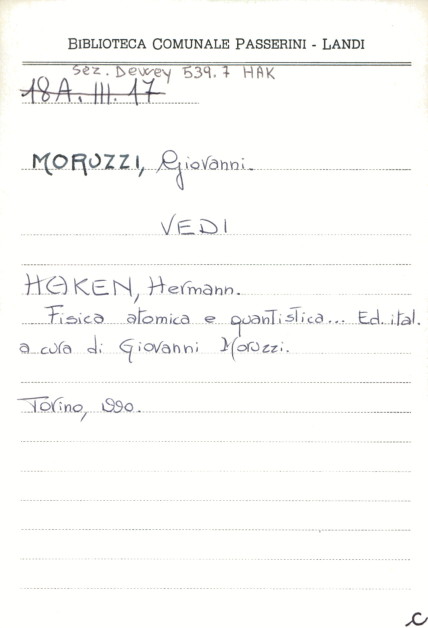 BIBLIOTECA COMUNALE PASSERINI - LANDI
Sez. Dewey 539.7 HAK
18A. III. 17
MORUZZI, Giovanni.
VEDI
HAKEN, Hermann.
Fisica atomica e quantistica... Ed. ital.
a cura di Giovanni Moruzzi.
Torino, 1990.
C